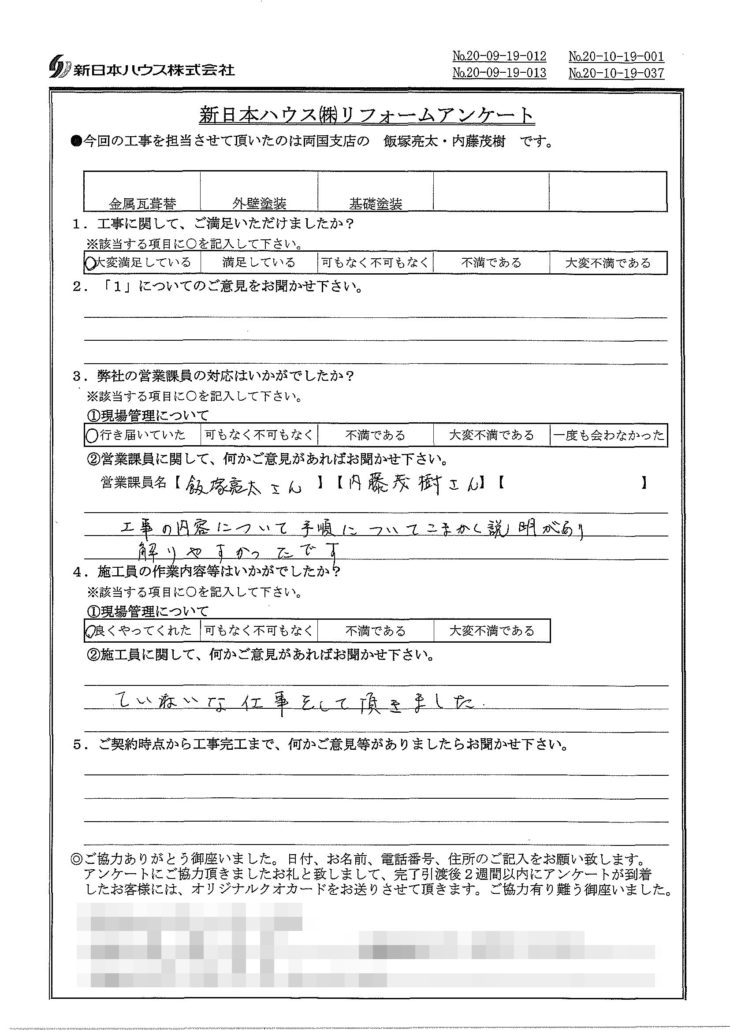 新日本ハウス株式会社
№20-09-19-012 №20-10-19-001
№20-09-19-013 №20-10-19-037
新日本ハウス㈱リフォームアンケート
●今回の工事を担当させて頂いたのは両国支店の 飯塚亮太・内藤茂樹 です。
金属瓦葺替 外壁塗装 基礎塗装
1．工事に関して、ご満足いただけましたか？
※該当する項目に○を記入して下さい。
○大変満足している 満足している 可もなく不可もなく 不満である 大変不満である
2．「1」についてのご意見をお聞かせ下さい。
3．弊社の営業課員の対応はいかがでしたか？
※該当する項目に○を記入して下さい。
①現場管理について
○行き届いていた 可もなく不可もなく 不満である 大変不満である 一度も会わなかった
②営業課員に関して、何かご意見があればお聞かせ下さい。
営業課員名【飯塚亮太さん】【内藤茂樹さん】【 】
工事の内容について手順についてこまかく説明があり
解りやすかったです
4．施工員の作業内容等はいかがでしたか？
※該当する項目に○を記入して下さい。
①現場管理について
○良くやってくれた 可もなく不可もなく 不満である 大変不満である
②施工員に関して、何かご意見があればお聞かせ下さい。
ていねいな仕事をして頂きました.
5．ご契約時点から工事完工まで、何かご意見等がありましたらお聞かせ下さい。
◎ご協力ありがとう御座いました。日付、お名前、電話番号、住所のご記入をお願い致します。
アンケートにご協力頂きましたお礼と致しまして、完了引渡後２週間以内にアンケートが到着
したお客様には、オリジナルクオカードをお送りさせて頂きます。ご協力有り難う御座いました。